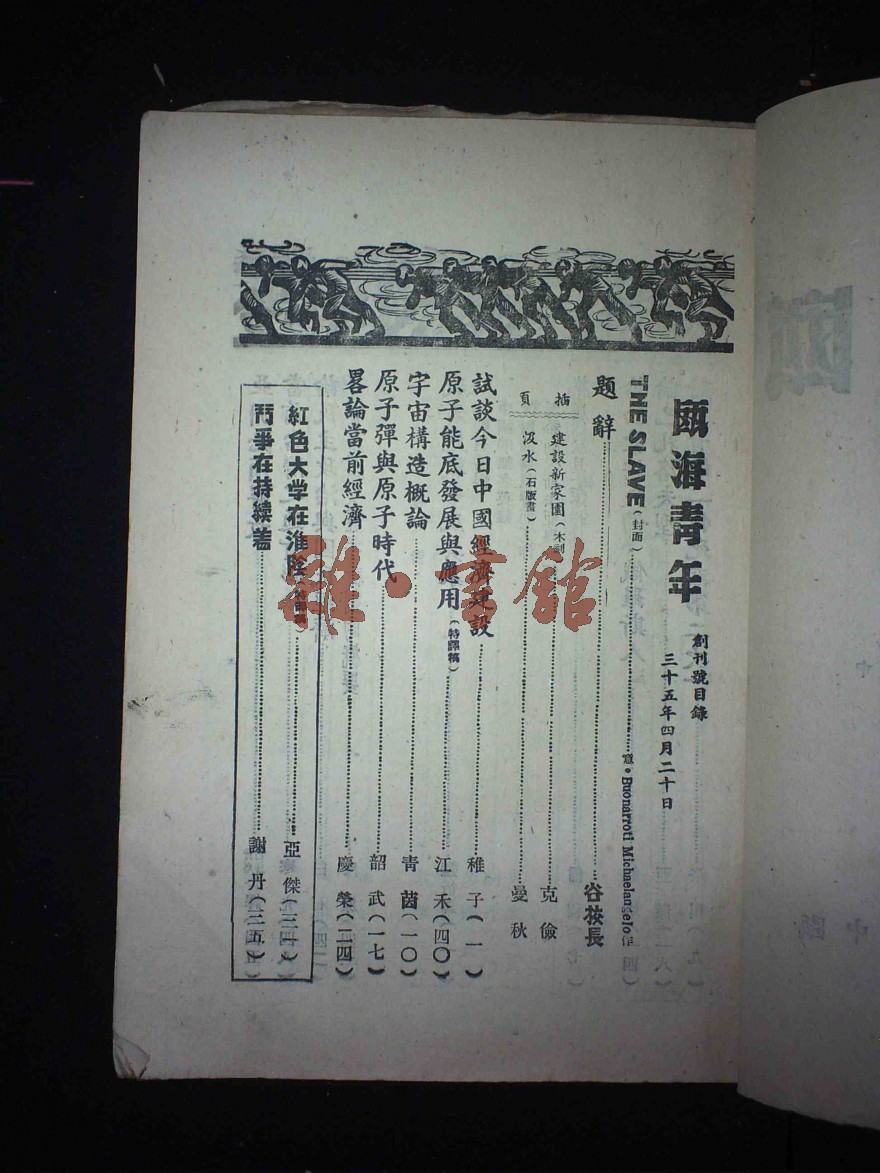 甌海青年
創刊號目錄
三十五年四月二十日
THE SLAVE(封面)意・Buonarroti Michaelangelo作
題辭 谷按長
插頁
建設新家園(木刻) 克儉
汲水(石版畫) 曼秋
試談今日中國經濟建設 稚子(一)
原子能底發展與應用(特譯稿) 江禾(四〇)
宇宙構造概論 青茵(一〇)
原子彈與原子時代 韶武(一七)
畧論當前經濟 慶榮(二四)
紅色大学在淮陰(特輯稿) 亞傑(三一)
鬥爭在持續着 謝丹(三五)
雜·書館